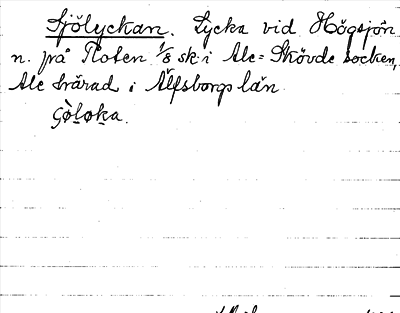 Sjölyckan. Lycka vid Högsjön
n. på Floten 1/8 sk. i Ale-Skövde socken,
Ale härad i Älfsborgs län.